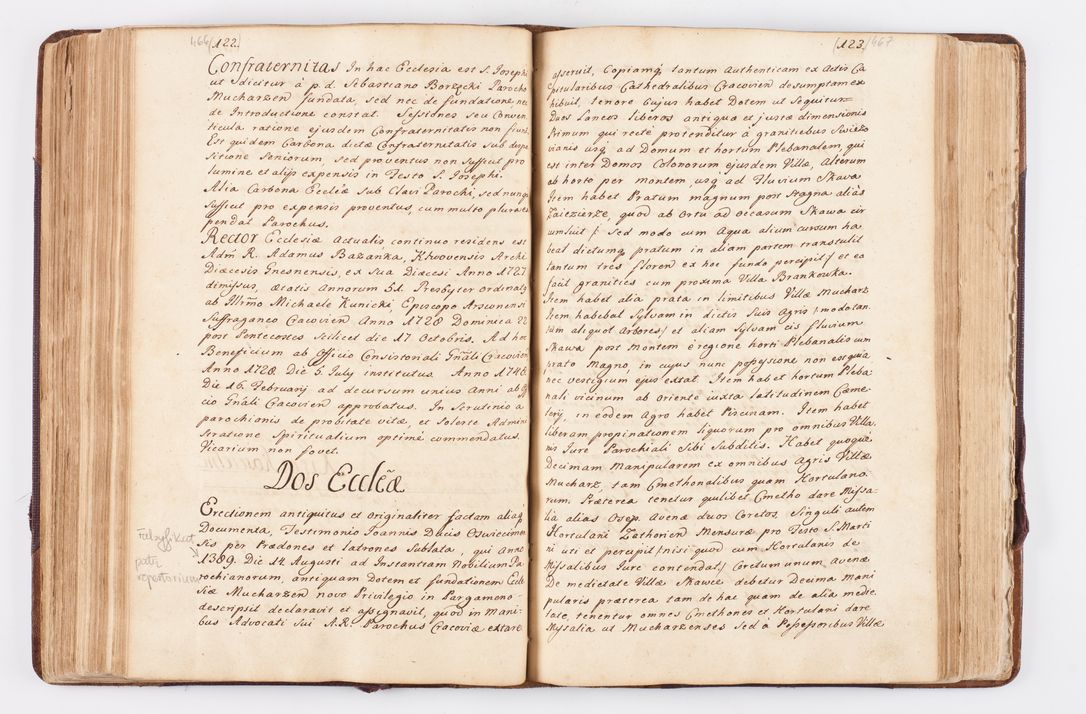 466 (122.)
Confraternitas In hac Ecclesia est S. Josephi
ut dicitur à p. d. Sebastiano Borzęcki Parocho
Mucharzen fundata, sed nec de fundatione nec
de Introductione constat. Sessiones seu Conven-
ticula ratione ejusdem Confraternitatis non fiunt
Est quidem Carbona dictæ Confraternitatis sub dispo
sitione Seniorum, sed proventus non sufficit pro
lumine et alijs expensis in Festo S. Josephi.
Alia Carbona Eccliæ sub Clavi Parochi, sed nunqā
sufficit pro expensis proventus, cum multo plura ex
pendat Parochus.
Rector Ecclesiæ actualis continuo residens est
Adm̄ R. Adamus Bażanka, Khvovensis Archi
Diæcesis Gnesnensis, ex sua Diæcesi Anno 1727
dimissus, ætatis Annorum 51. Presbyter ordinatus
ab Illr̄mo Michaele Kunicki, Episcopo Arsonensi
Suffraganeo Cracovien Anno 1728 Dominica 22
post Pentecostes scilicet die 17 Octobris. Ad hoc
Beneficium ab Officio Consistoriali Gñali Cracovien
Anno 1728 Die 5. July institutus. Anno 1748
Die 16. February ad decursum unius anni ab Offi
cio Gnāli Cracovien approbatus. In scrutinio à
parochianis de probitate vitæ, et solerte Admini
stratione spiritualium optimè commendatus.
Vicarium non fovet.
Dos Ecclēæ
Erectionem antiquitus et originaliter factam aliaq̀
Documenta, Testimonio Joannis Ducis Oswiecimen
sis per Prædones et latrones sublata, qui anno
1389. Die 14. Augusti ad Instantiam Nobilium Pa
rochianorum, antiquam Dotem et fundationem Eccle
siæ Mucharzen novo Privilegio in Pargameno
descripsit declaravit et assignavit, quod in Mani-
bus Advocati sui A.R. Parochus Cracoviæ extare
Falsyfikat
patrz
repertorium
(123.) 467
asseruit, Copiamq̀ tantum authenticam ex Actis Ca
pitularibus Cathedralibus Cracovien desumptam ex
hibuit, tenore cujus habet Dotem ut Sequitur
Duos Laneos liberos antiquæ et justæ dimensionis
Primum qui rectè protenditur à granitiebus
vianis usq̀ ad Domum et hortum Plebanalem, qui
est inter Domos Colonorum ejusdem Villæ, Alterum
ab horto per montem, usq̀ ad Fluvium Skawa
Item habet Pratum magnum post Stagna aliàs
Zaiezierze, quod ab ortu ad occasum Skawa cir
cumluit / sed modo cum Aqua alium cursum ha
beat dictumq̀ pratum in aliam partem transtulit
tantum tres floren ex hoc fundo percipit / et ea
facit granities cum proxima Villa Brankowka.
Item habet alia prata in limitibus Villæ Mucharz
Item habebat Sylvam in dictis suis Agris / modo tan-
tùm aliquot Arbores / et aliam Sylvam cis fluvium
Skawa post Montem è regione horti Plebanalis cum
prato Magno, in cujus nunc possessione non est quia
nec vestigium ejus extat. Item habet hortum Pleba-
nali vicinum ab Oriente iuxta latitudinem Cæme-
terij, in eodem Agro habet Piscinam. Item habet
liberam propinationem liquorum pro omnibus Villa-
nis Jure Parochiali sibi subditis. Habet quoque
Decimam Manipularem ex omnibus Agris Villæ
Mucharz, tam Cmethonalibus quam Hortulano-
rum. Præterea tenetur quilibet Cmetho dare Missa-
lia alias Osep. Avenæ duos Coretos. Singuli autem
Hortulani Zathorien Mensuræ pro Festo S. Marti
ni uti et percipit / nisi quod cum Hortulanis de
Missalibus Jure contendat / Coretum unum avenæ
De medietate Villæ Skawce debetur Decima mani
pularis præterea tam de hac quam de alia medie
tate, tenentur omnes Cmethones et Hortulani dare
Missalia ut Mucharzenses sed à Possessoribus Villæ